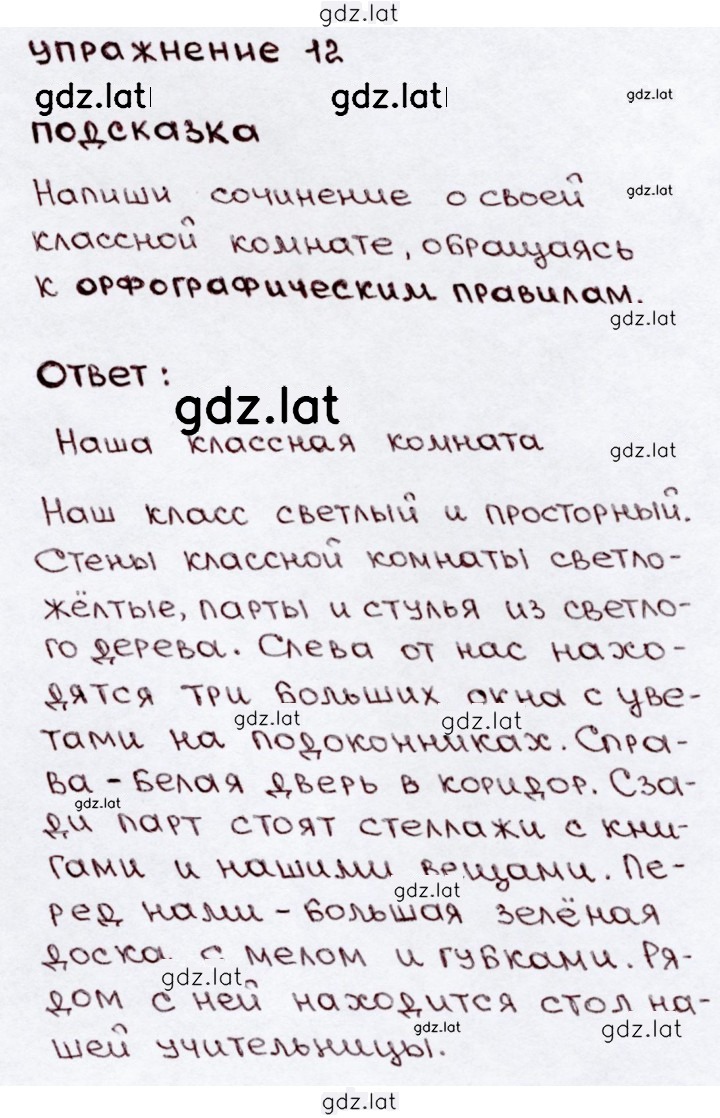 gdz.lat
упражнение 12
gdz.lat gdz.lat gdz.lat
подсказка
Напиши сочинение о своей gdz.lat
классной комнате, обращаясь
к орфографическим правилам.
gdz.lat
Ответ:
gdz.lat
Наша классная комната gdz.lat
Наш класс светлый и просторный.
Стены классной комнаты светло-
жёлтые, парты и стулья из светло-
го дерева. Слева от нас нахо-
дятся три больших окна с цве-
gdz.lat gdz.lat
тами на подоконниках. Спра-
ва - белая дверь в коридор. Сза-
gdz.lat
ди парт стоят стеллажи с кни-
гами и нашими вещами. Пе-
gdz.lat
ред нами - большая зелёная
доска с мелом и губками. Ря-
gdz.lat
дом с ней находится стол на-
gdz.lat gdz.lat
шей учительницы.
gdz.lat